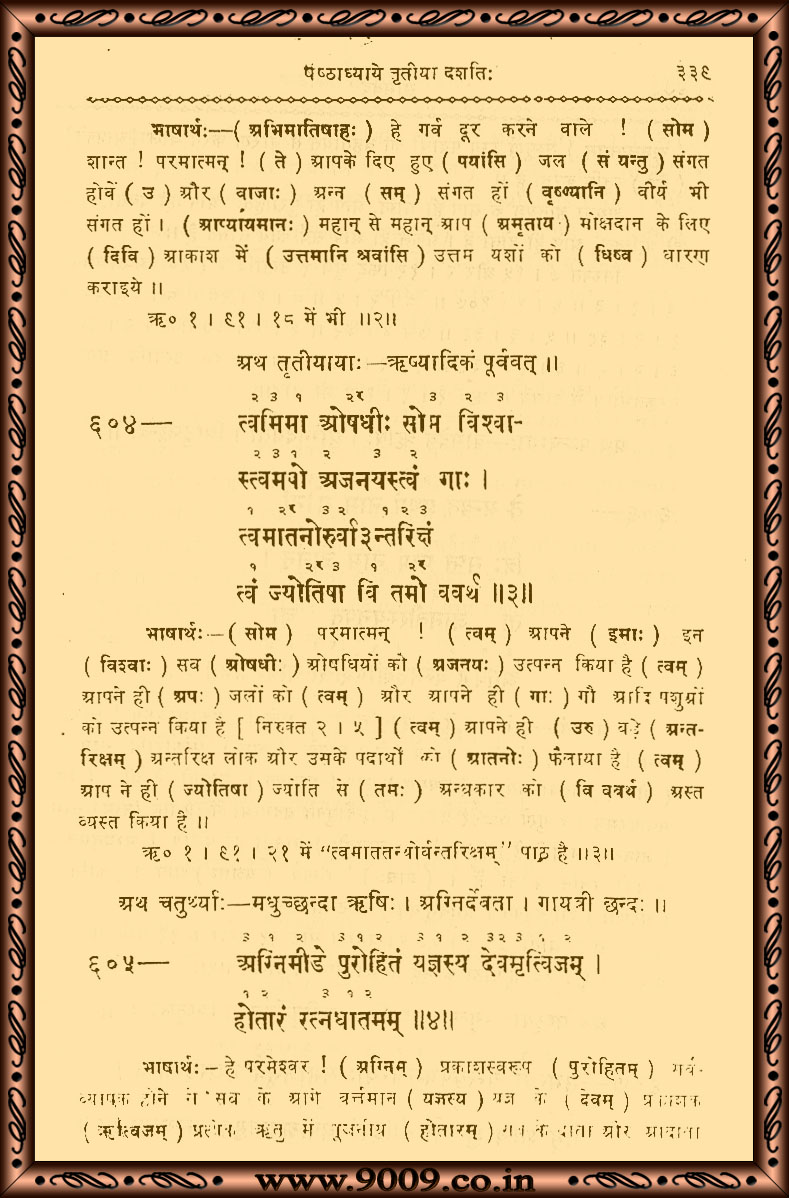 षष्ठाध्याये तृतीया दशतिः ३३९
भाषार्थः—( अभिमातिषाहः ) हे गर्व दूर करने वाले ! ( सोम )
शान्त ! परमात्मन् ! ( ते ) आपके दिए हुए ( पयांसि ) जल ( सं यन्तु ) संगत
होवें ( उ ) और ( वाजाः ) अन्न ( सम् ) संगत हों ( वृष्ण्यानि ) वीर्य भी
संगत हों । ( आप्यायमानः ) महान् से महान् आप ( अमृताय ) मोक्षदान के लिए
( दिवि ) आकाश में ( उत्तमानि श्रवांसि ) उत्तम यशों को ( धिष्व ) धारण
कराइये ॥
ऋ० १ । ९१ । १८ में भी ॥२॥
अथ तृतीयायाः—ऋष्यादिकं पूर्ववत् ॥
२ ३ १ २र ३ २ ३
६०४— त्वमिमा ओषधीः सोम विश्वा-
२ ३ १ २ ३ २
स्त्वमपो अजनयस्त्वं गाः ।
१ २र ३ २ १ २ ३
त्वमातनोरुर्वा३न्तरिक्षं
१ २र ३ १ २र
त्वं ज्योतिषा वि तमो ववर्थ ॥३॥
भाषार्थः—( सोम ) परमात्मन् ! ( त्वम् ) आपने ( इमाः ) इन
( विश्वाः ) सब ( ओषधीः ) ओषधियों को ( अजनयः ) उत्पन्न किया है ( त्वम् )
आपने ही ( अपः ) जलों को ( त्वम् ) और आपने ही ( गाः ) गौ आदि पशुओं
को उत्पन्न किया है [ निरुक्त २ । ५ ] ( त्वम् ) आपने ही ( उरु ) बड़े ( अन्त-
रिक्षम् ) अन्तरिक्ष लोक और उसके पदार्थों को ( आतनोः ) फैनाया है ( त्वम् )
आप ने ही ( ज्योतिषा ) ज्योति से ( तमः ) अन्धकार को ( वि ववर्थ ) अस्त
व्यस्त किया है ॥
ऋ० १ । ९१ । २१ में “त्वमाततन्थोर्वन्तरिक्षम्” पाठ है ॥३॥
अथ चतुर्थ्याः—मधुच्छन्दा ऋषिः । अग्निर्देवता । गायत्री छन्दः ॥
३ १ २ ३ १ २ ३ १ २ ३२ ३ १ २
६०५— अग्निमीडे पुरोहितं यज्ञस्य देवमृत्विजम् ।
१ २ ३ १ २
होतारं रत्नधातमम् ॥४॥
भाषार्थः—हे परमेश्वर ! ( अग्निम् ) प्रकाशस्वरूप ( पुरोहितम् ) सर्व-
व्यापक होने से सब के आगे वर्त्तमान ( यज्ञस्य ) यज्ञ के ( देवम् ) प्रकाशक
( ऋत्विजम् ) प्रत्येक ऋतु में पूजनीय ( होतारम् ) सब के दाता और आदाता
www.9009.co.in